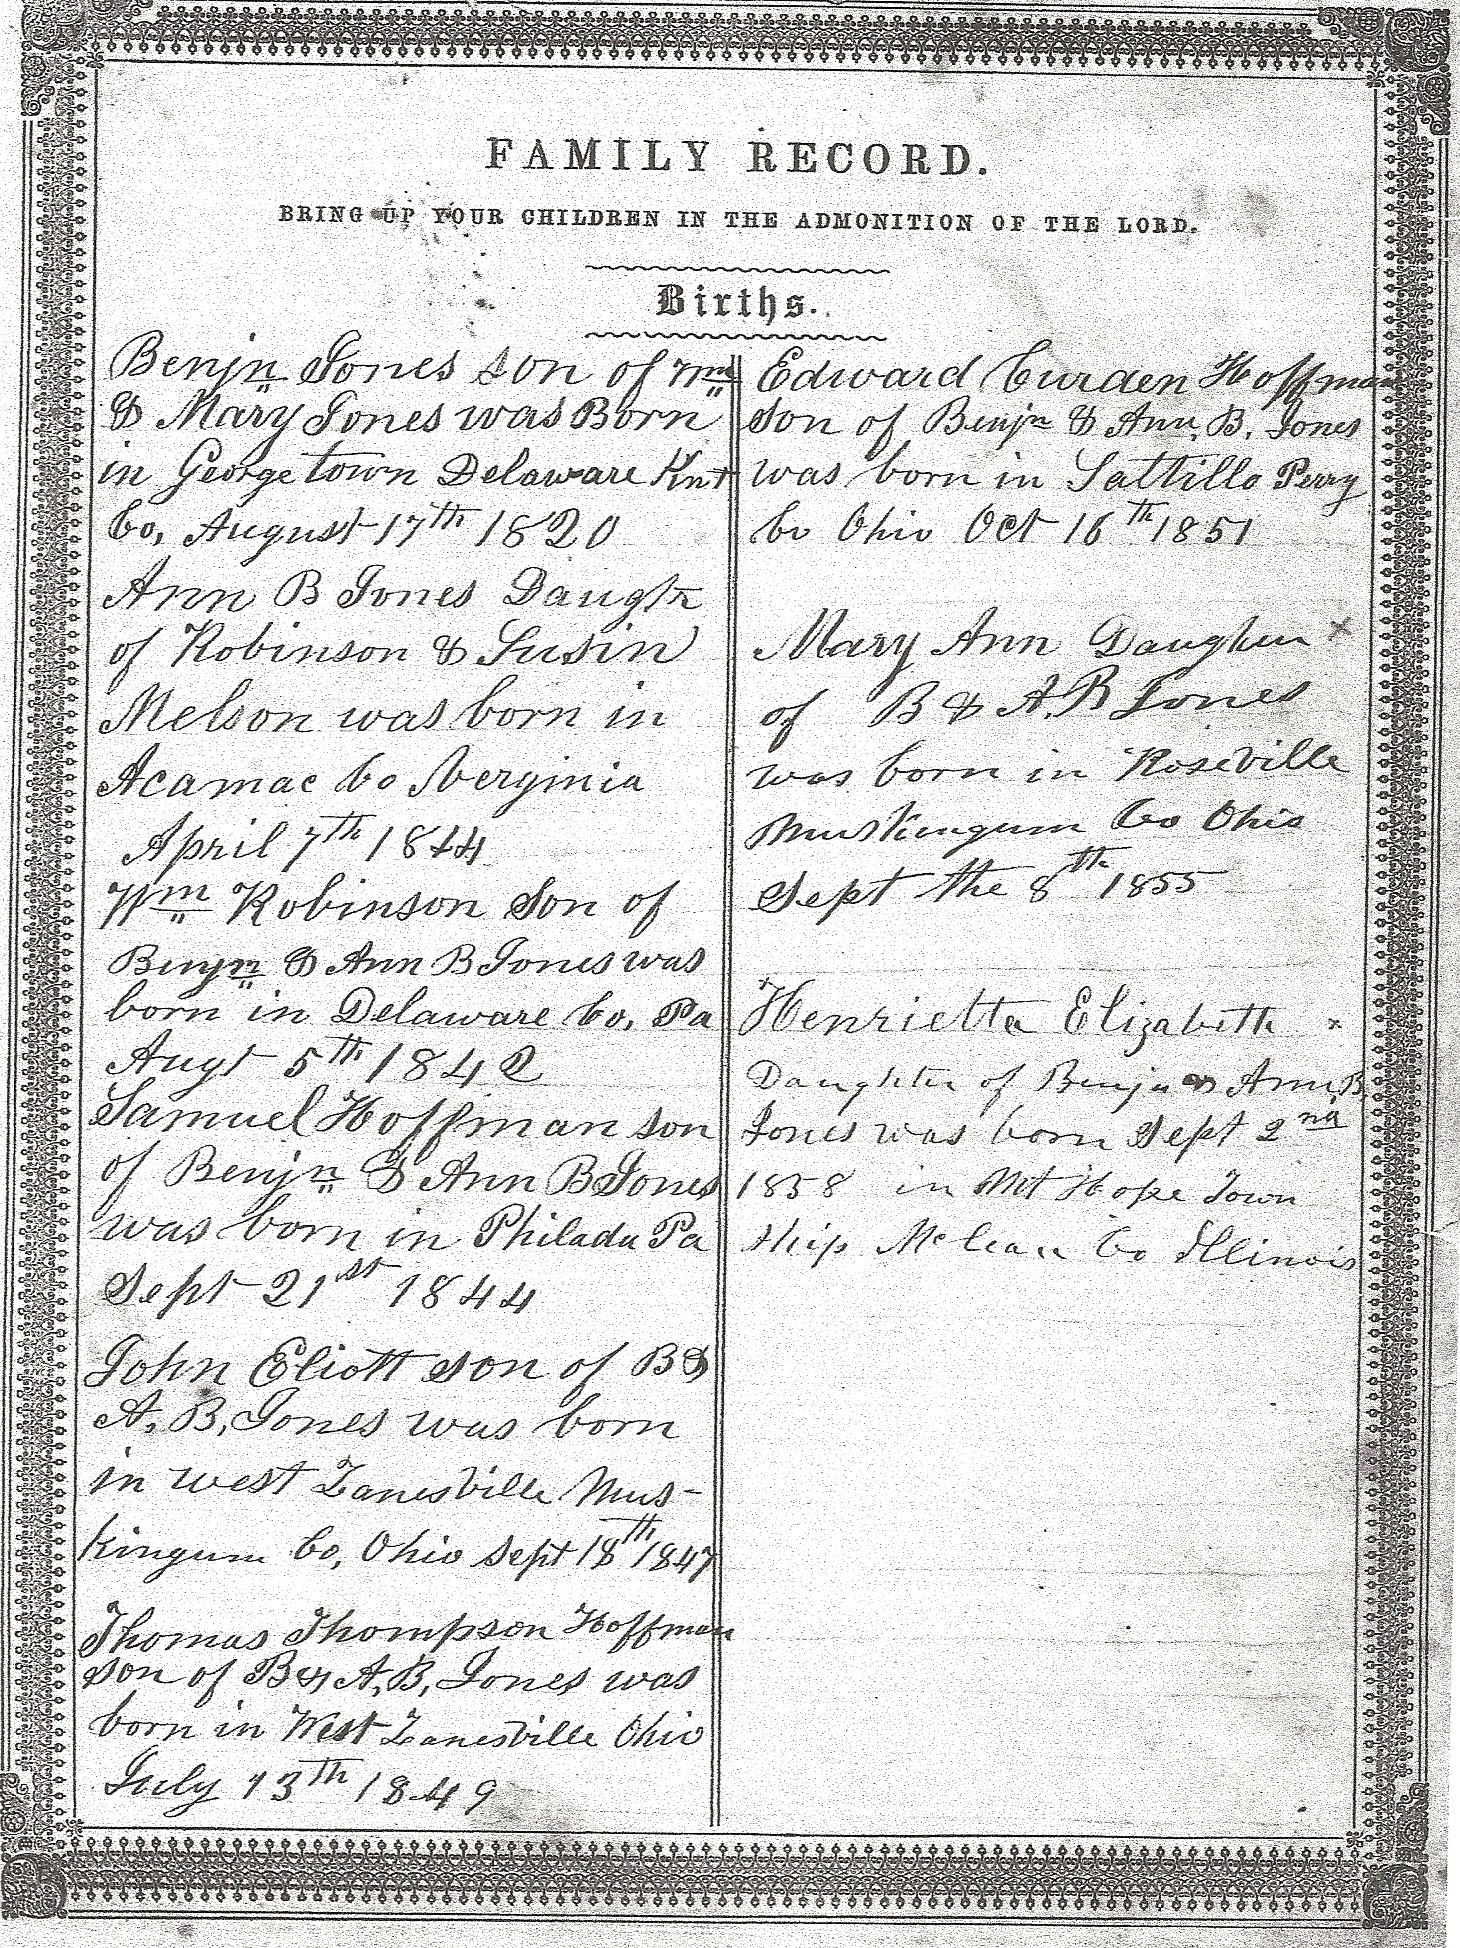 FAMILY RECORD.
BRING UP YOUR CHILDREN IN THE ADMONITION OF THE LORD.
Births.
Benjn Jones son of Wm
& Mary Jones was Born
in George town Delaware Knt
Co, August 17th 1820
Ann B Jones Daughtr
of Robinson & Susin
Melson was born in
Acamac Co Verginia
April 7th 1844
Wm Robinson Son of
Benjn & Ann B Jones was
born in Delaware Co, Pa
Augt 5th 1842
Samuel Hoffman son
of Benjn & Ann B Jones
was born in Philada Pa
Sept 21st 1844
John Eliott son of B &
A, B, Jones was born
in west Zanesville Mus-
kingum Co, Ohio Sept 18th 1847
Thomas Thompson Hoffman
son of B & A, B, Jones was
born in West Zanesville Ohio
July 13th 1849
Edward Curden Hoffman
son of Benjn & Ann, B, Jones
was born in Saltillo Perry
Co Ohio Oct 16th 1851
Mary Ann Daughter x
of B & A. B Jones
was born in Roseville
Muskingum Co Ohio
Sept the 8th 1855
x Henrietta Elizabeth x
Daughter of Benjn & Ann, B,
Jones was born Sept 2nd
1858 in Mt Hope Town
Ship McLean Co Illinois